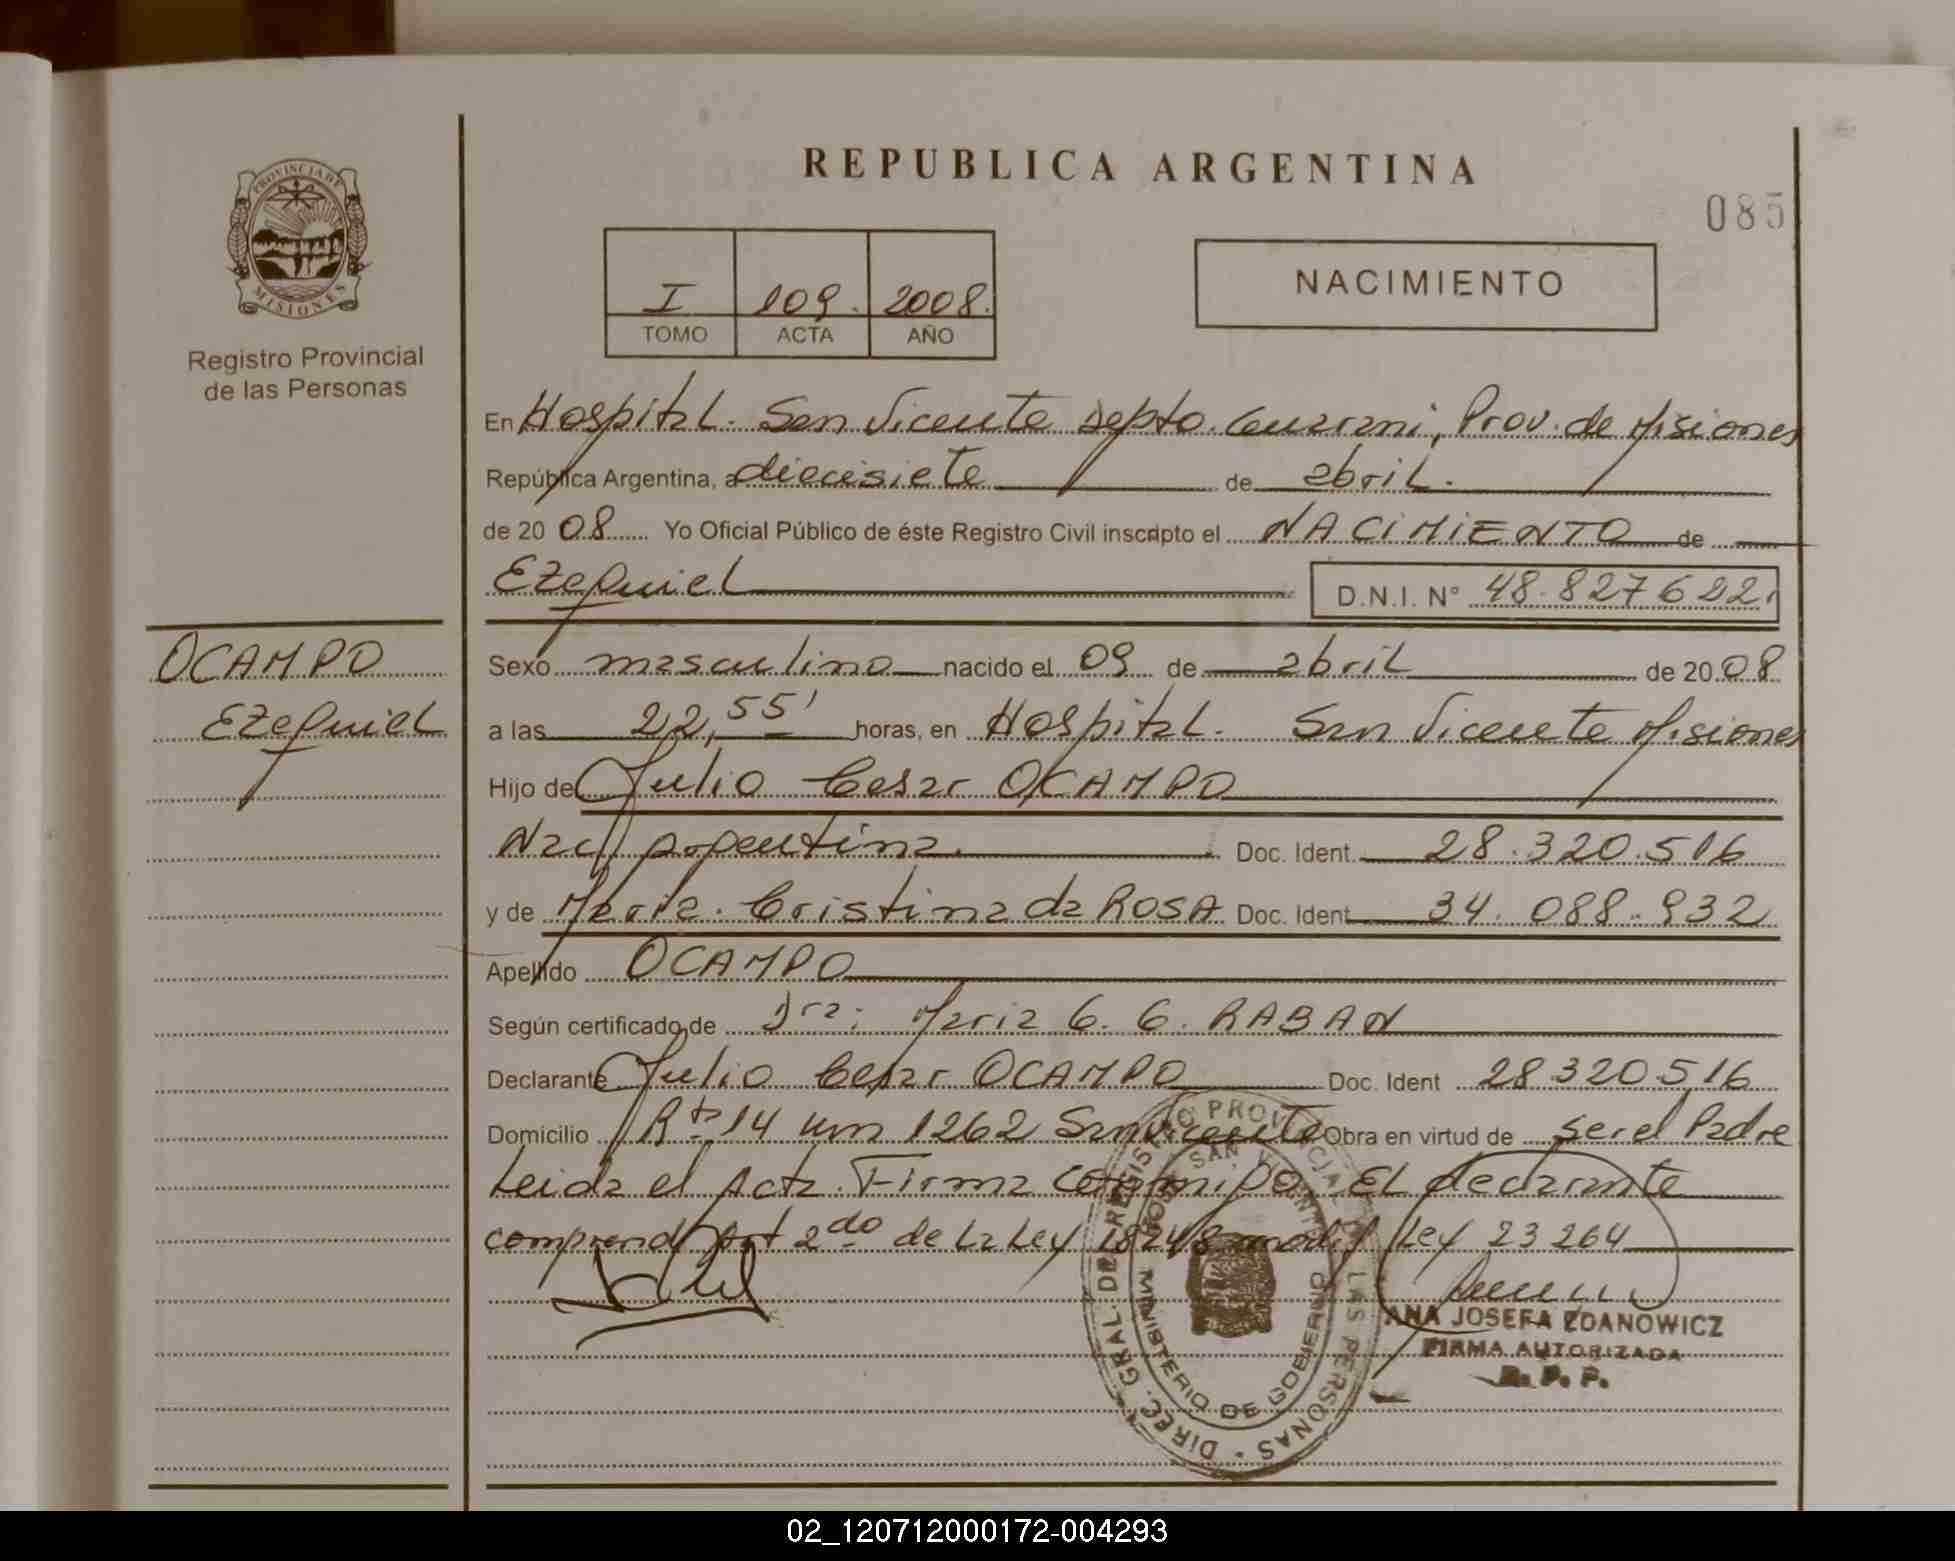 REPUBLICA ARGENTINA
085
PROVINCIA DE MISIONES
Registro Provincial
de las Personas
I 109. 2008.
TOMO ACTA AÑO
NACIMIENTO
En Hospital. San Vicente Depto. Guarani, Prov. de Misiones
República Argentina, a diecisiete de abril.
de 20 08 Yo Oficial Público de éste Registro Civil inscripto el NACIMIENTO de
Ezequiel D.N.I. Nº 48.827622.
OCAMPO
Ezequiel
Sexo masculino nacido el 09 de abril de 20 08
a las 22,55' horas, en Hospital. San Vicente Misiones
Hijo de Julio Cesar OCAMPO
Nac Argentina. Doc. Ident. 28.320.516
y de Maria. Cristina da ROSA Doc. Ident 34.088.932
Apellido OCAMPO
Según certificado de Dra: Maria G. G. RABAN
Declarante Julio Cesar OCAMPO Doc. Ident 28320516
Domicilio Rta 14 km 1262 San Vicente Obra en virtud de ser el Padre
Leida el Acta. Firma conmigo El declarante
comprend Art 2do de La Ley 18248 modif Ley 23264
DIREC. GRAL. DEL REGISTRO PROVINCIAL DE LAS PERSONAS
SAN VICENTE
MINISTERIO DE GOBIERNO
ANA JOSEFA ZDANOWICZ
FIRMA AUTORIZADA
R. P. P.
02_120712000172-004293